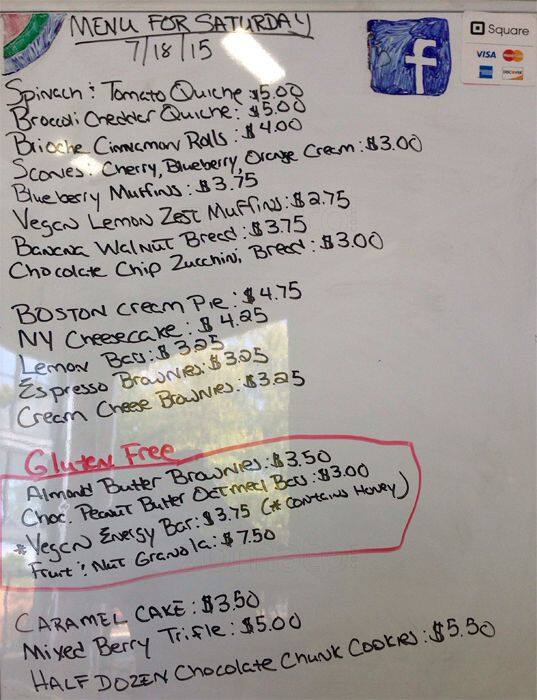 MENU FOR SATURDAY
7/18/15
Square
VISA
DISCOVER
f
Spinach & Tomato Quiche $5.00
Broccoli Cheddar Quiche: $5.00
Brioche Cinnamon Rolls: $4.00
Scones: Cherry, Blueberry, Orange Cream: $3.00
Blueberry Muffins: $3.75
Vegan Lemon Zest Muffins: $2.75
Banana Walnut Bread: $3.75
Chocolate Chip Zucchini Bread: $3.00
BOSTON Cream Pie: $4.75
NY Cheesecake: $4.25
Lemon Bars: $3.25
Espresso Brownies: $3.25
Cream Cheese Brownies: $3.25
Gluten Free
Almond Butter Brownies: $3.50
Choc. Peanut Butter Oatmeal Bars: $3.00
*Vegan Energy Bar: $3.75 (*contains Honey)
Fruit & Nut Granola: $7.50
CARAMEL CAKE: $3.50
Mixed Berry Trifle: $5.00
HALF DOZEN Chocolate Chunk Cookies: $5.50